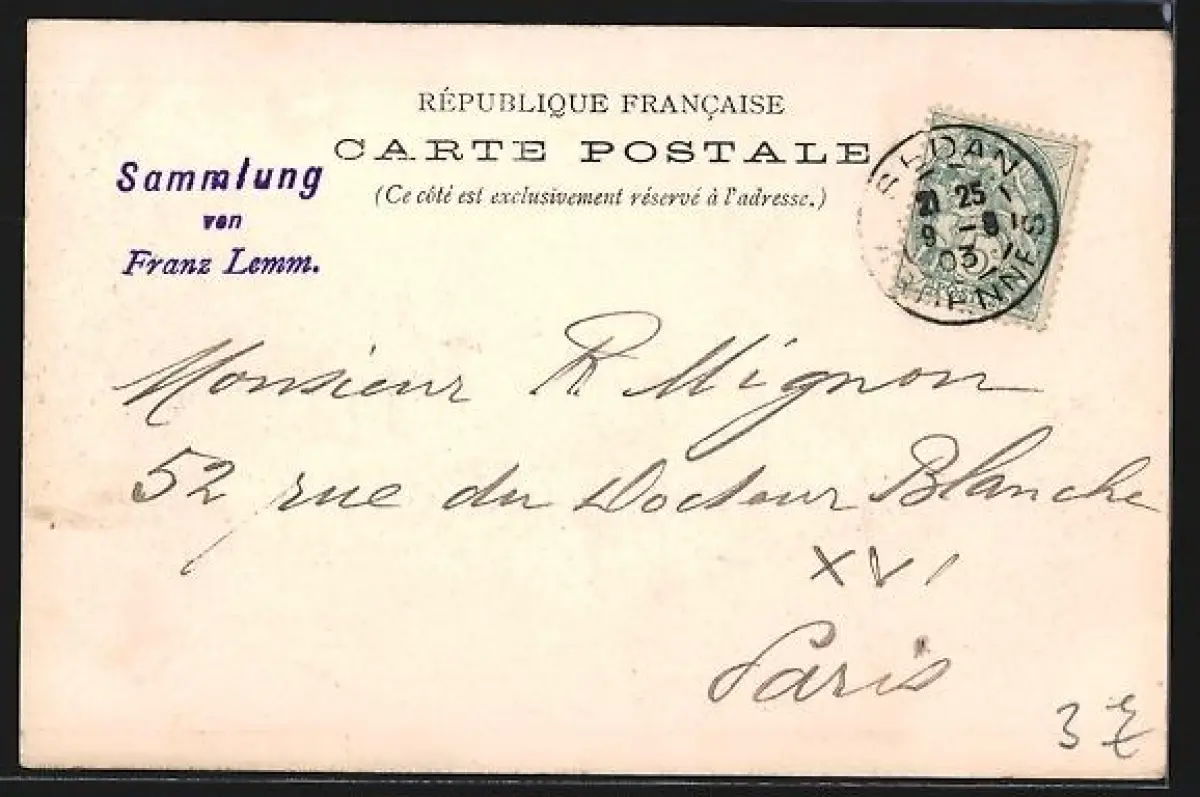 RÉPUBLIQUE FRANÇAISE
CARTE POSTALE
(Ce côté est exclusivement réservé à l'adresse.)
Sammlung
von
Franz Lemm.
SEDAN
21 25
9 - 8
03
ARDENNES
Monsieur R Mignon
52 rue du Docteur Blanche
XVI
Paris
3